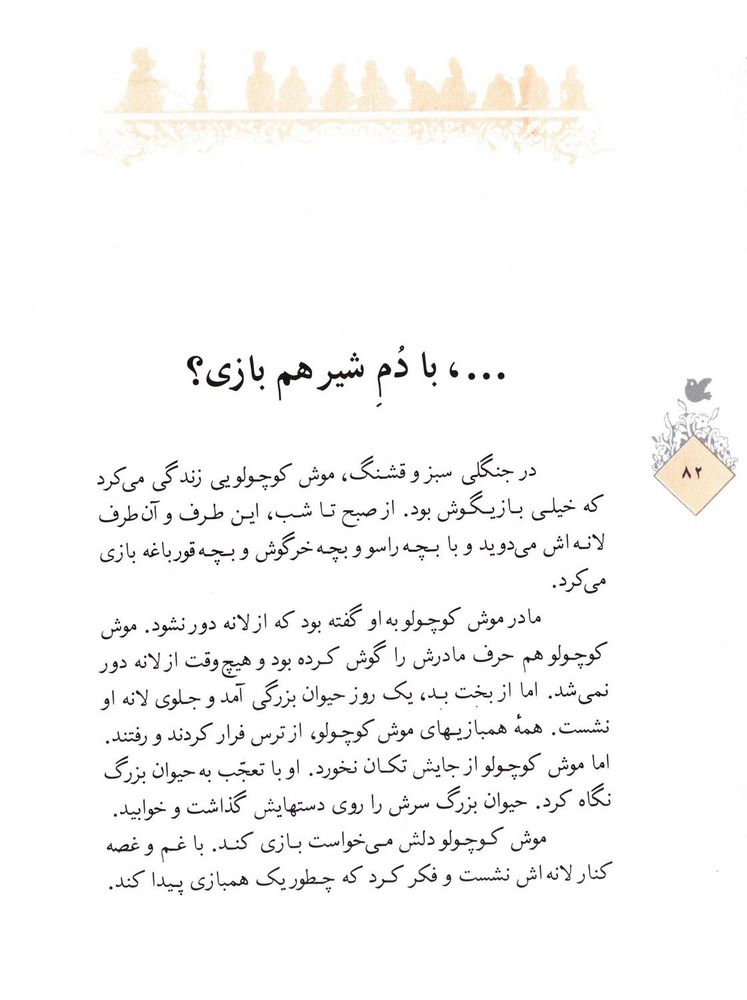 ...، با دُمِ شیر هم بازی؟
۸۲
در جنگلی سبز و قشنگ، موش کوچولویی زندگی می‌کرد
که خیلی بازیگوش بود. از صبح تا شب، این طرف و آن‌طرف
لانه‌اش می‌دوید و با بچه راسو و بچه خرگوش و بچه قورباغه بازی
می‌کرد.
مادر موش کوچولو به او گفته بود که از لانه دور نشود. موش
کوچولو هم حرف مادرش را گوش کرده بود و هیچ‌وقت از لانه دور
نمی‌شد. اما از بخت بد، یک روز حیوان بزرگی آمد و جلوی لانه او
نشست. همهٔ همبازیهای موش کوچولو، از ترس فرار کردند و رفتند.
اما موش کوچولو از جایش تکان نخورد. او با تعجّب به حیوان بزرگ
نگاه کرد. حیوان بزرگ سرش را روی دستهایش گذاشت و خوابید.
موش کوچولو دلش می‌خواست بازی کند. با غم و غصه
کنار لانه‌اش نشست و فکر کرد که چطور یک همبازی پیدا کند.